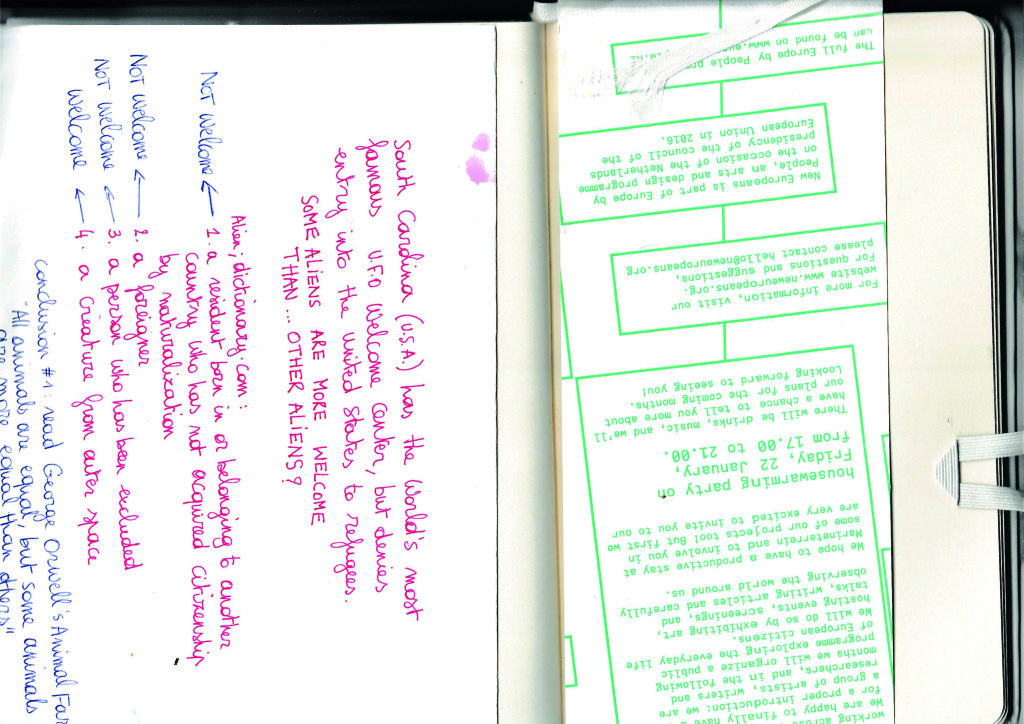 South Carolina (U.S.A) has the World's most
famous U.F.O Welcome Center, but denies
entry into the united states to refugees.
SOME ALIENS ARE MORE WELCOME
THAN ... OTHER ALIENS?
Alien; dictionary.com:
Not welcome ← 1. a resident born in or belonging to another
country who has not acquired citizenship
by naturalization
Not welcome ← 2. a foreigner
Not welcome ← 3. a person who has been excluded
Welcome ← 4. a creature from outer space
conclusion #1: read George Orwell's Animal Far
"All animals are equal, but some animals
are more equal than others"
working across
We are happy to finally have a
for a proper introduction: we are
a group of artists, writers and
researchers, and in the following
months we will organize a public
programme exploring the everyday life
of European citizens.
We will do so by exhibiting art,
hosting events, screenings, and
talks, writing articles and carefully
observing the world around us.
We hope to have a productive stay at
Marineterrein and to involve you in
some of our projects too! But first we
are very excited to invite you to our
housewarming party on
Friday, 22 January,
from 17.00 to 21.00.
There will be drinks, music, and we'll
have a chance to tell you more about
our plans for the coming months.
Looking forward to seeing you!
For more information, visit our
website www.neweuropeans.org.
For questions and suggestions,
please contact hello@neweuropeans.org
New Europeans is part of Europe by
People, an arts and design programme
on the occasion of the Netherlands
presidency of the council of the
European Union in 2016.
The full Europe by People
can be found on